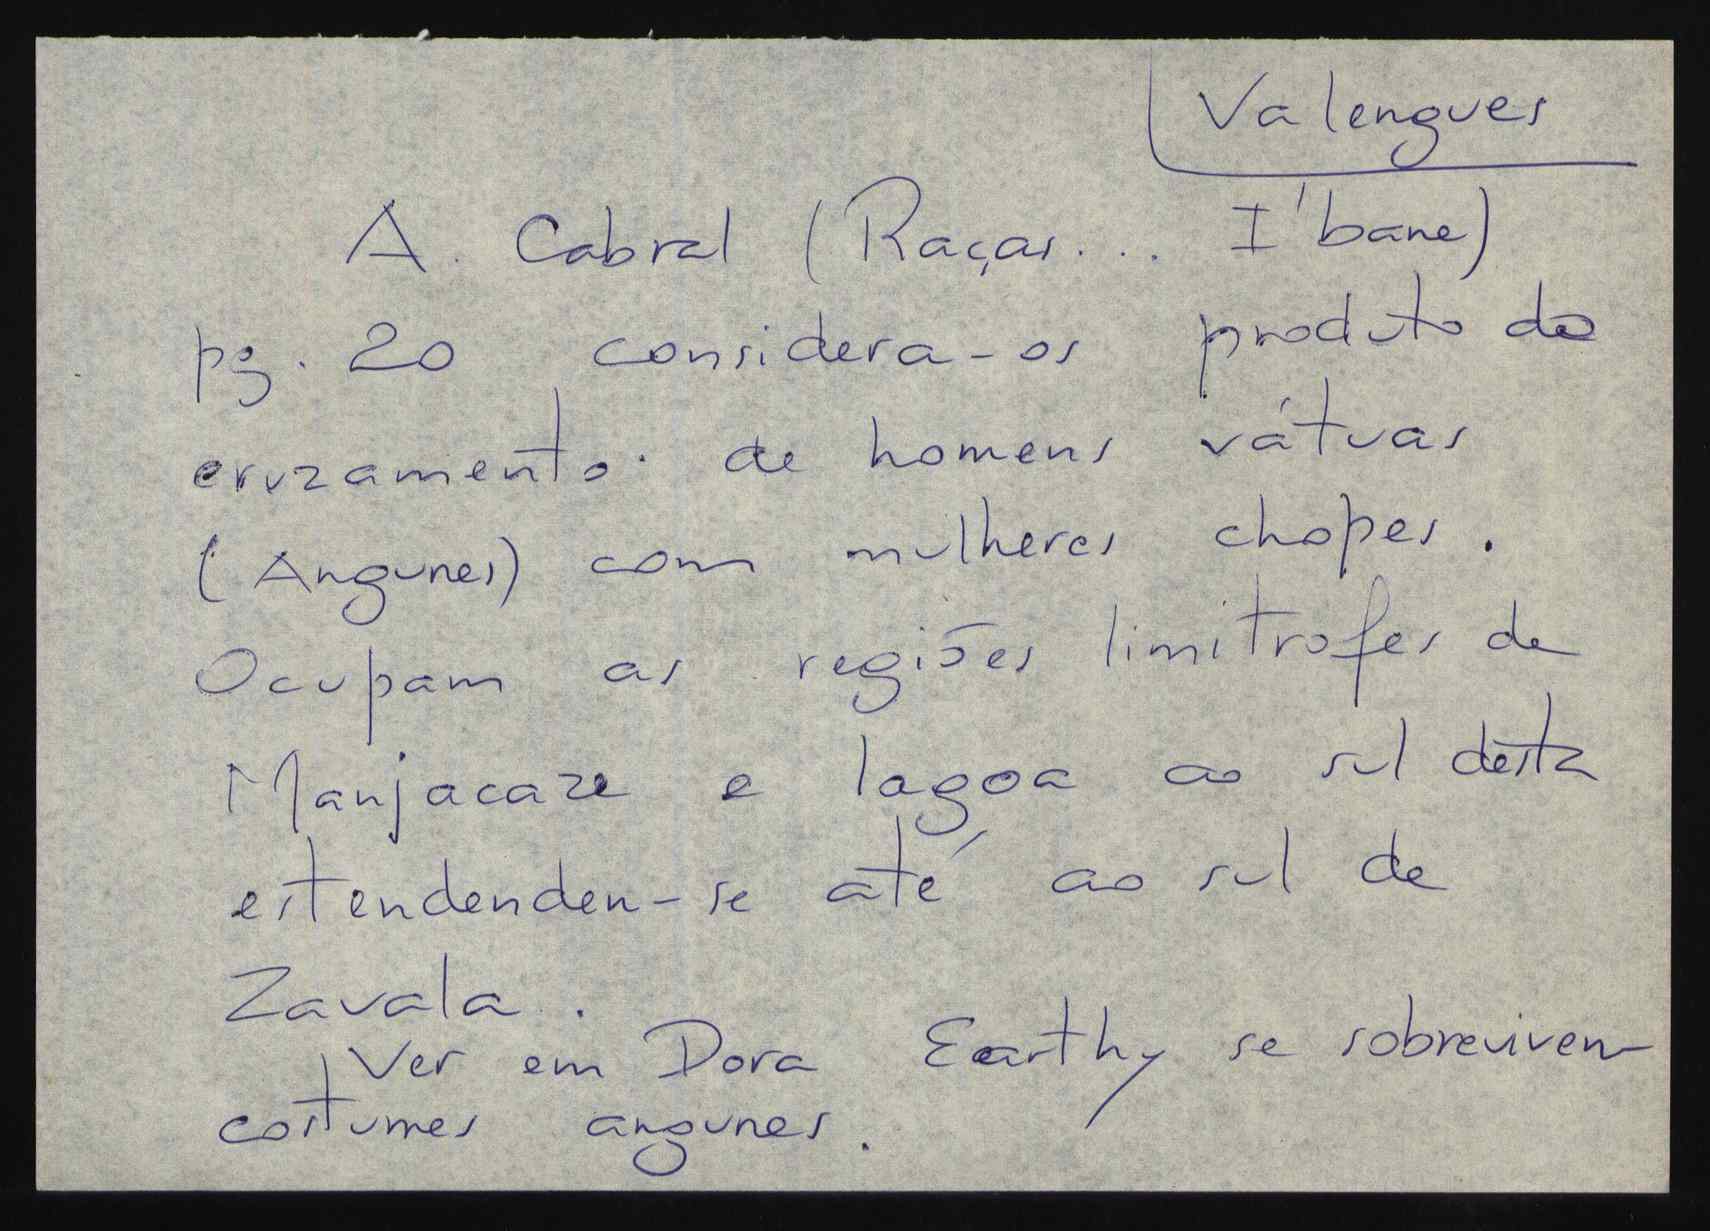 Valengues
A. Cabral (Raças... I'bane)
pg. 20 considera-os produto do
cruzamento de homens vátuas
(Angunes) com mulheres chopes.
Ocupam as regiões limitrofes de
Manjacaze e lagoa ao sul desta
estendenden-se até ao sul de
Zavala.
Ver em Dora Earthy se sobrevivem
costumes angunes.